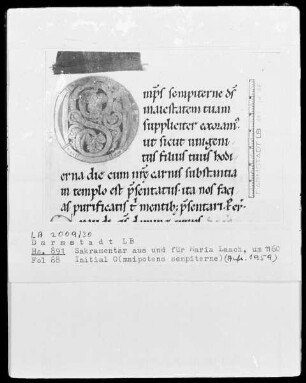 O mp̄s sempiterne ds̄
maiestatem tuam
suppliciter exoram᷒
ut sicut unigeni
tus filius tuus hodi
erna die cum nr̄ę carnis substantia
in templo est p̄sentatus· ita nos faci
as purificatis t̄ mentib; p̄sentari· Per
DARMSTADT LB
LA 2009/30
Darmstadt LB
Hs. 891 Sakramentar aus und für Maria Laach, um 1160
Fol 68 Initial O(mnipotens sempiterne) (Auf. 1959)